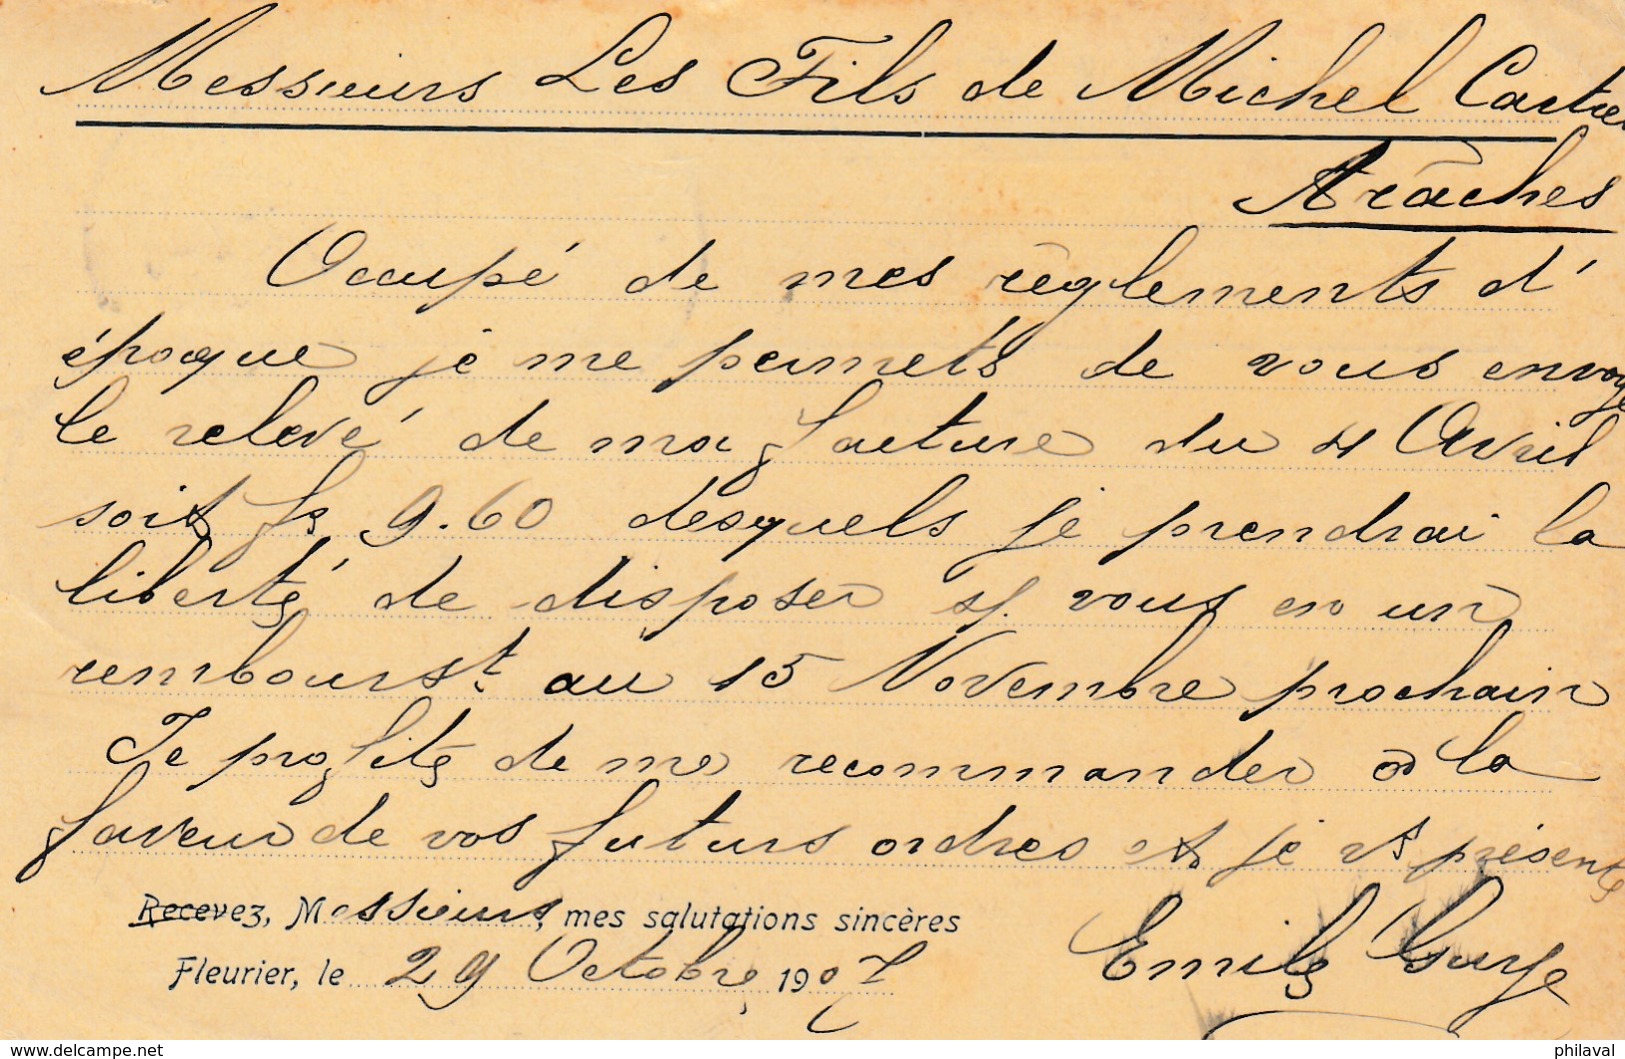 Messieurs Les Fils de Michel Cartier
Arâches
Occupé de mes règlements d'
époque je me permets de vous envoye
le relevé de ma facture du 4 Avril
soit fs 9.60 desquels je prendrai la
liberté de disposer s/. vous en un
rembourst. au 15 Novembre prochain
Je profite de me recommander à la
faveur de vos futurs ordres et je vs présente
Recevez, Messieurs, mes salutations sincères
Fleurier, le 29 Octobre 1907
Emile
www.delcampe.net
philaval